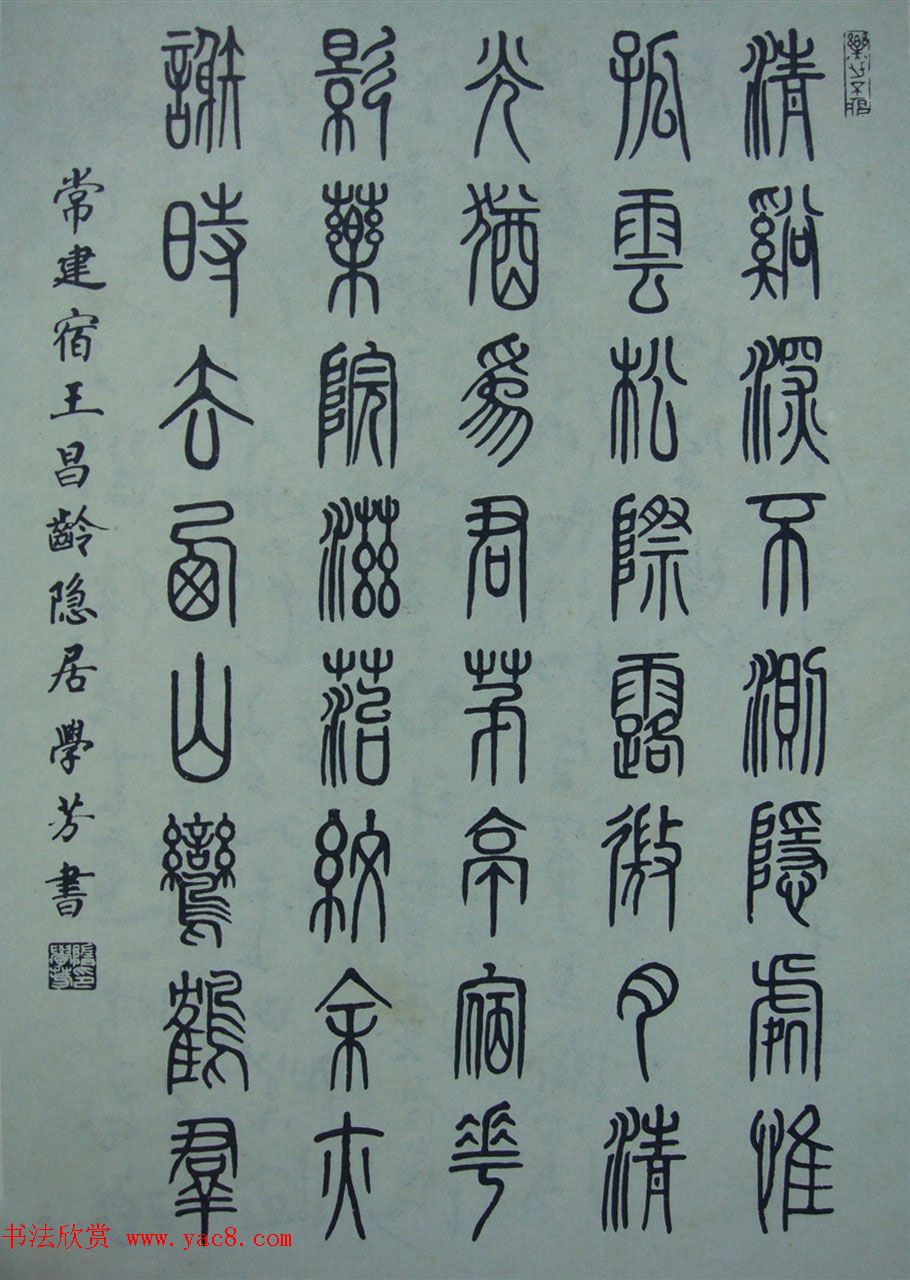 清谿深不測隱處惟
孤雲松際露微月清
光猶爲君茅亭宿花
影藥院滋落紋余亦
謝時去西山鸞鶴羣
常建宿王昌齡隐居學芳書
书法欣赏 www.yac8.com